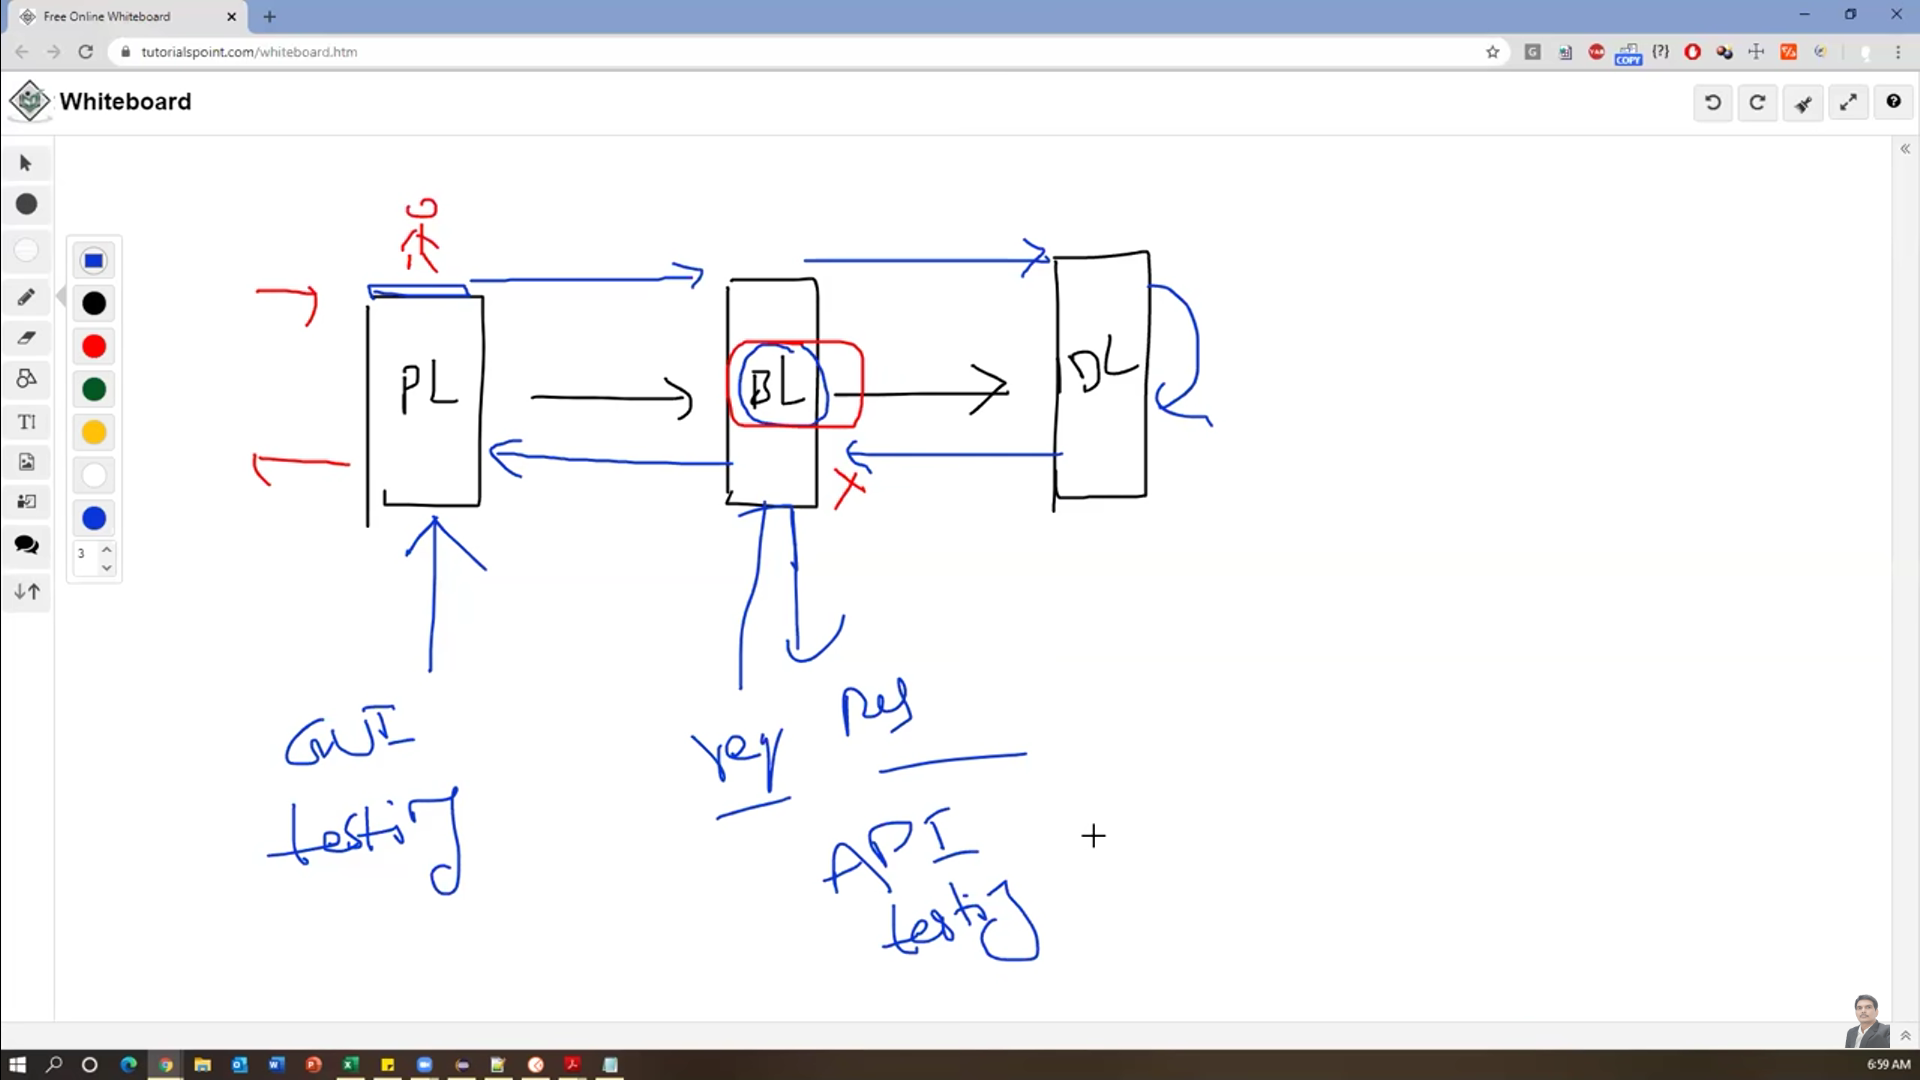 Free Online Whiteboard
tutorialspoint.com/whiteboard.htm
COPY
Whiteboard
PL
BL
DL
TI
3
GUI
testing
req
Res
API
testing
6:59 AM